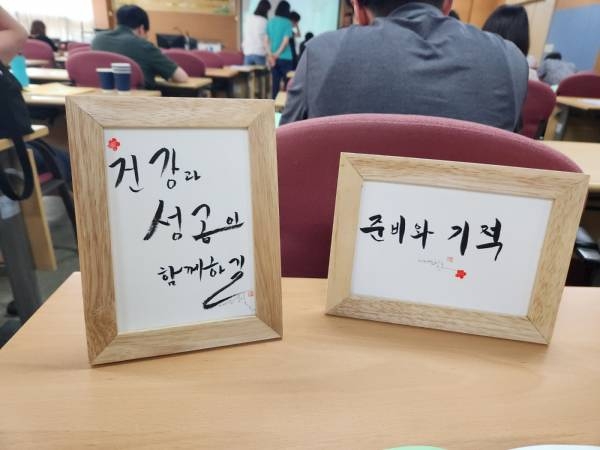 건강과
성공이
함께하길
준비와 기적